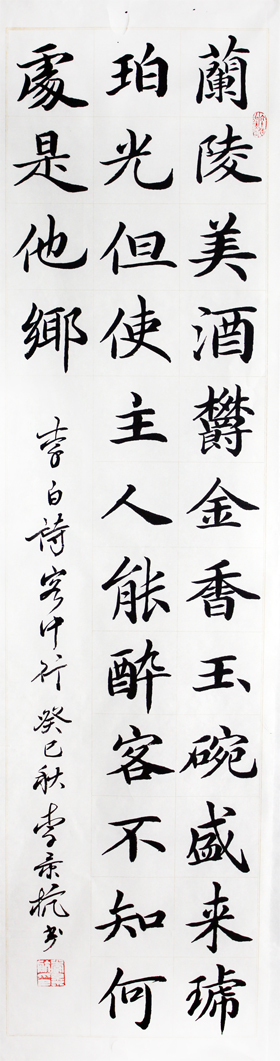 蘭陵美酒欎金香玉碗盛来琥
珀光但使主人能醉客不知何
處是他鄉
李白詩客中行 癸巳秋 李景杭书